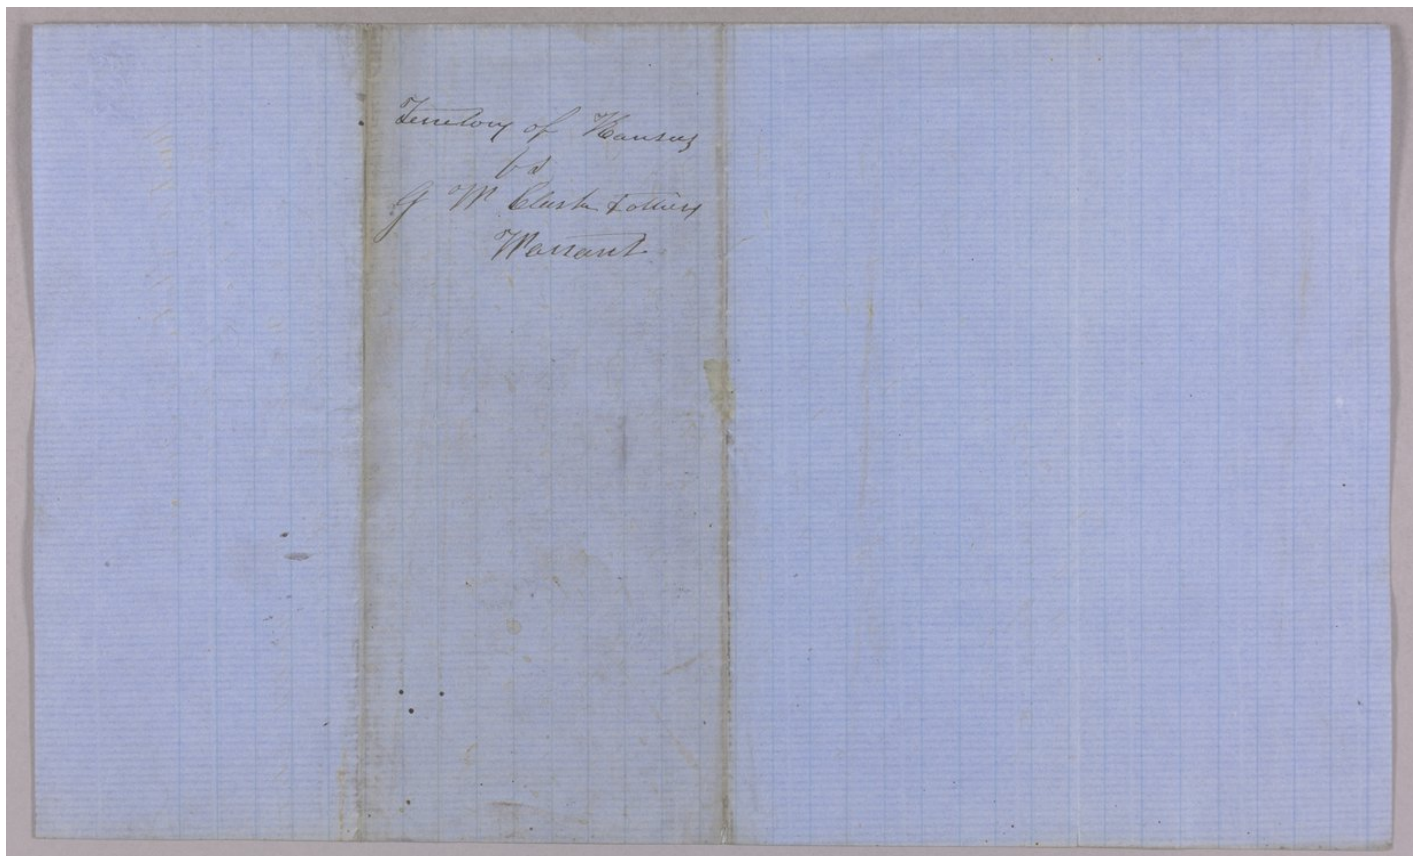 Territory of Kansas
vs
G W Clark & others
Warrant